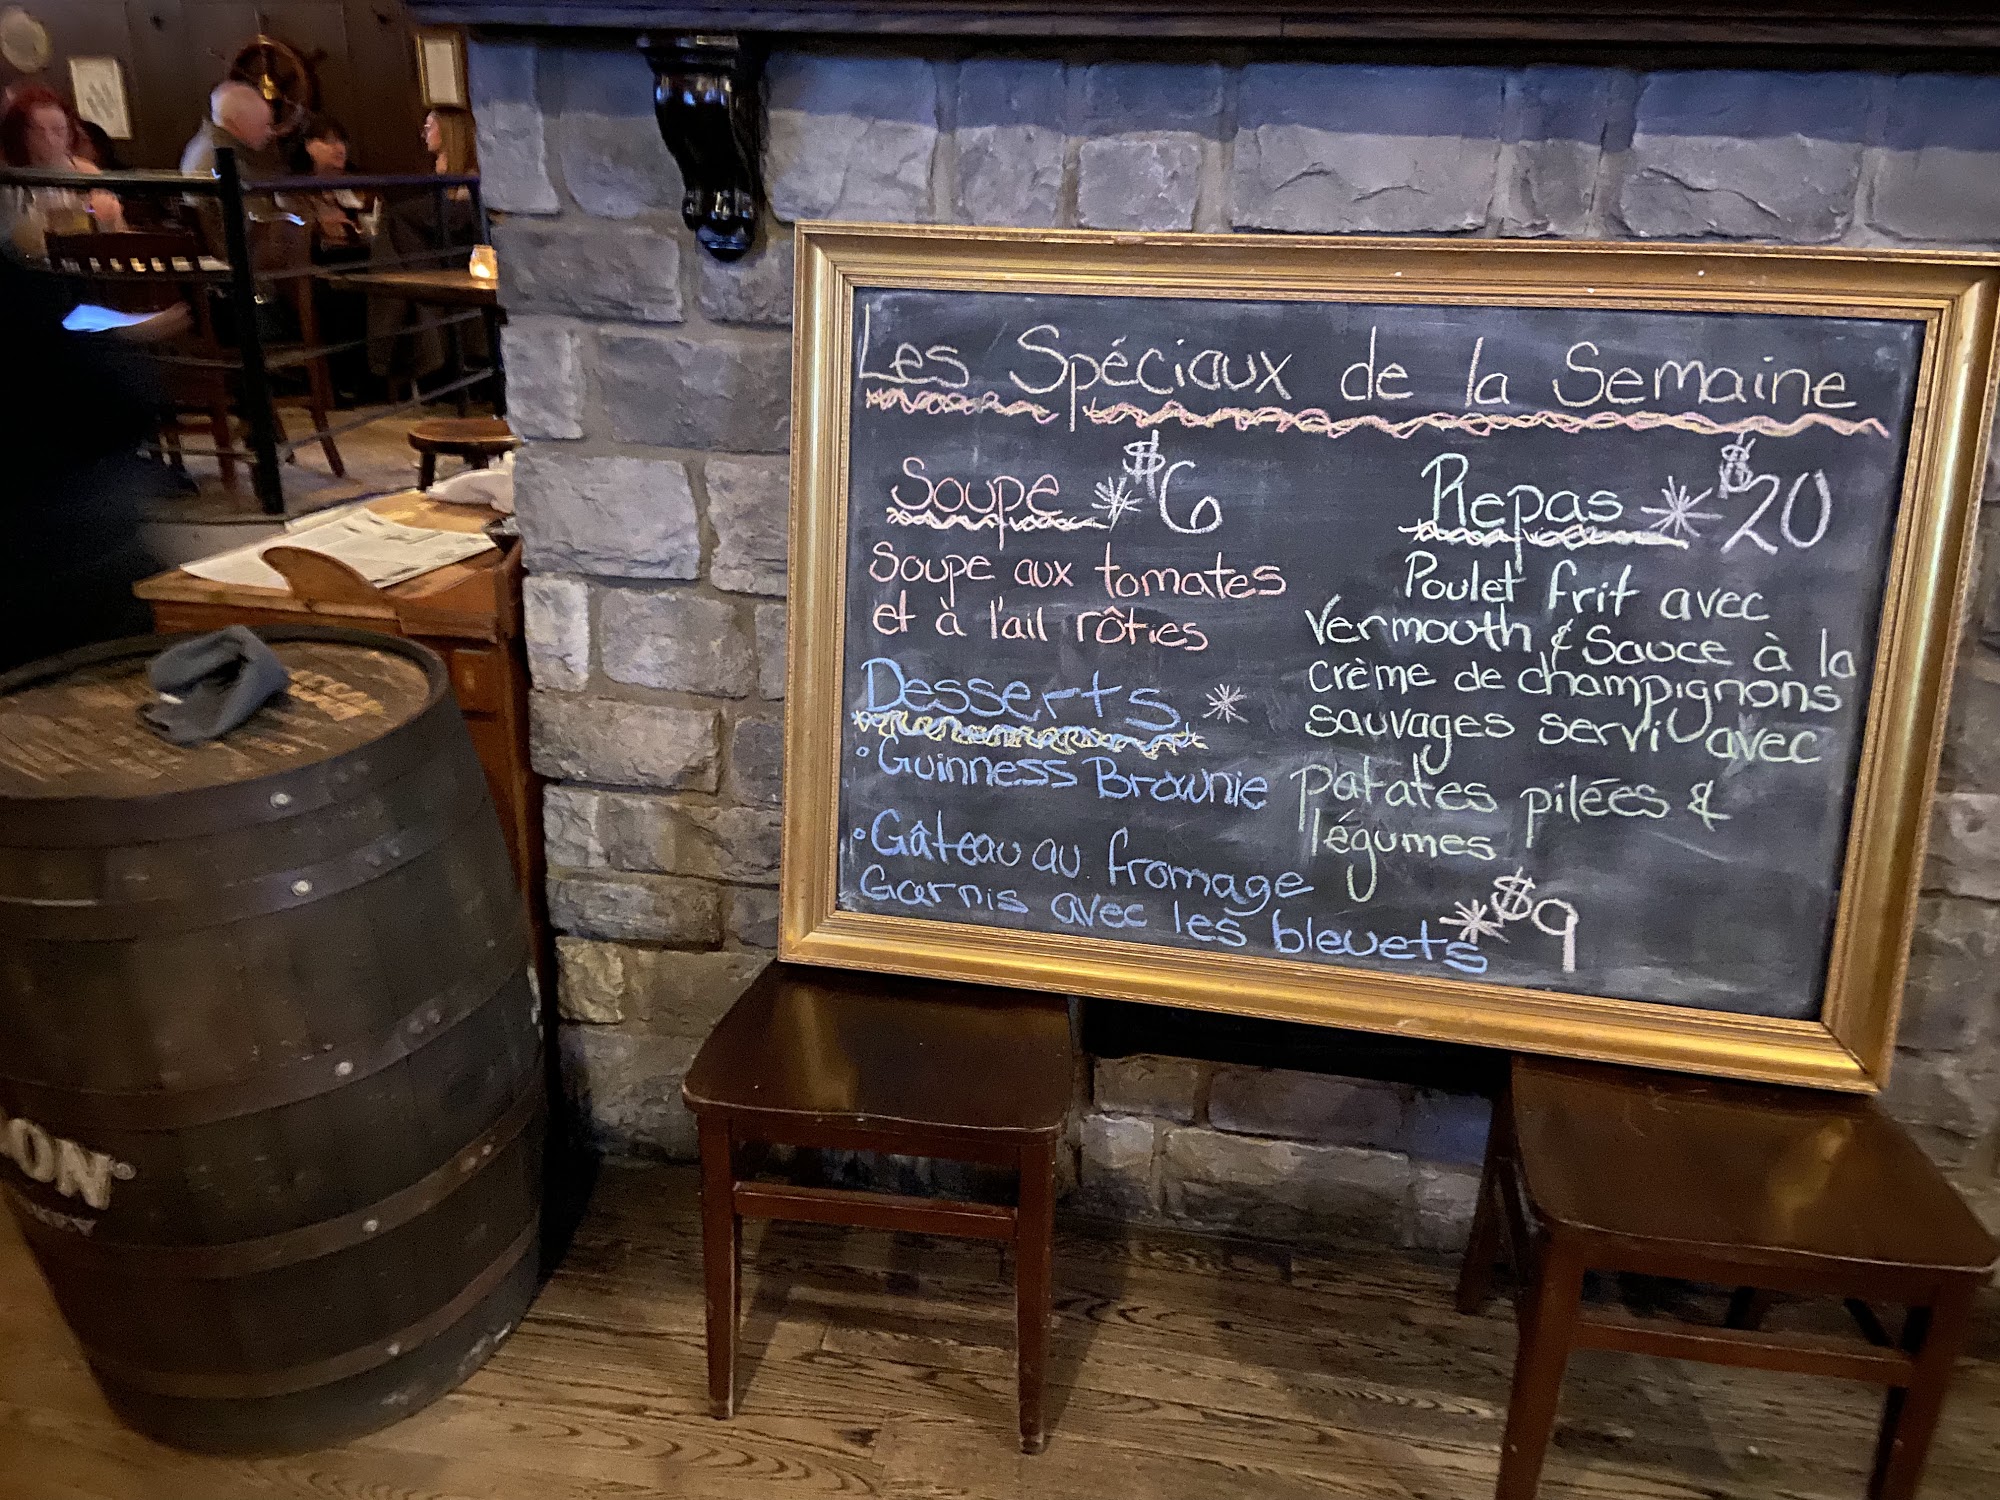 Les Spéciaux de la Semaine
Soupe * $6
Soupe aux tomates
et à l'ail rôties
Desserts *
• Guinness Brownie
• Gâteau au fromage
Garnis avec les bleuets * $9
Repas * $20
Poulet frit avec
Vermouth & Sauce à la
crème de champignons
sauvages servi avec
patates pilées &
légumes
ON